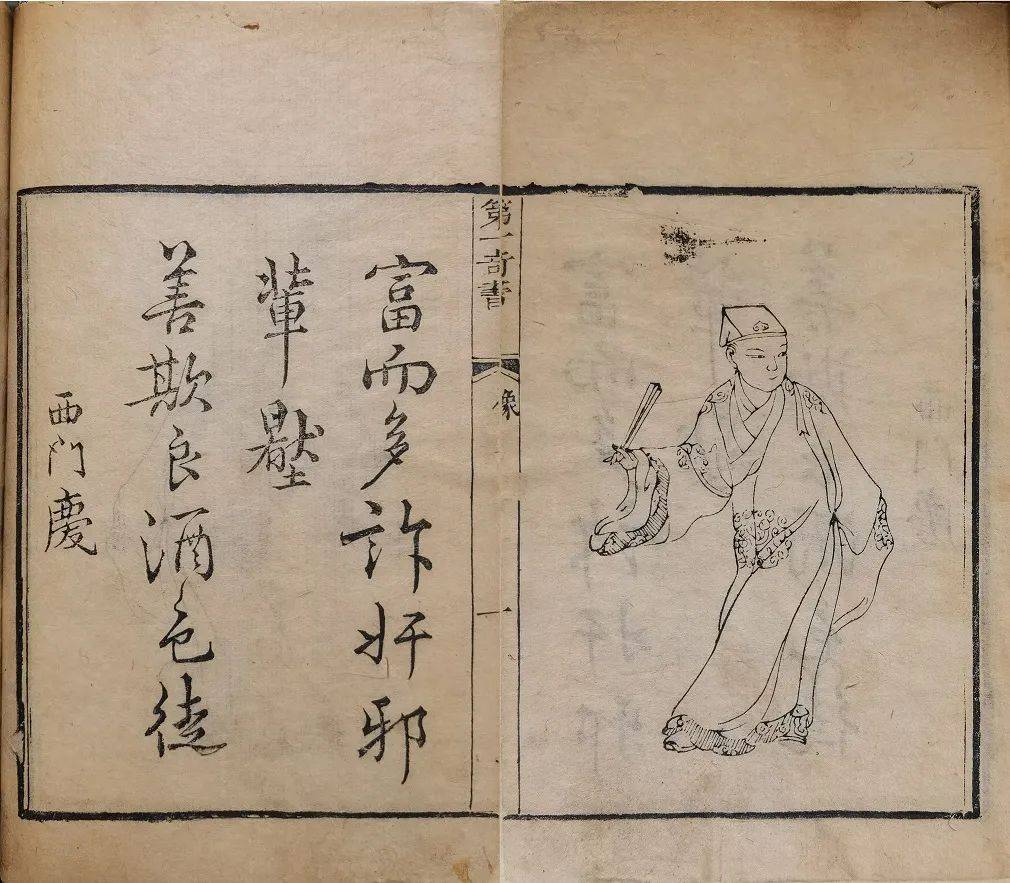 第一奇書
像
一
富而多詐奸邪
輩壓
善欺良酒色徒
西門慶